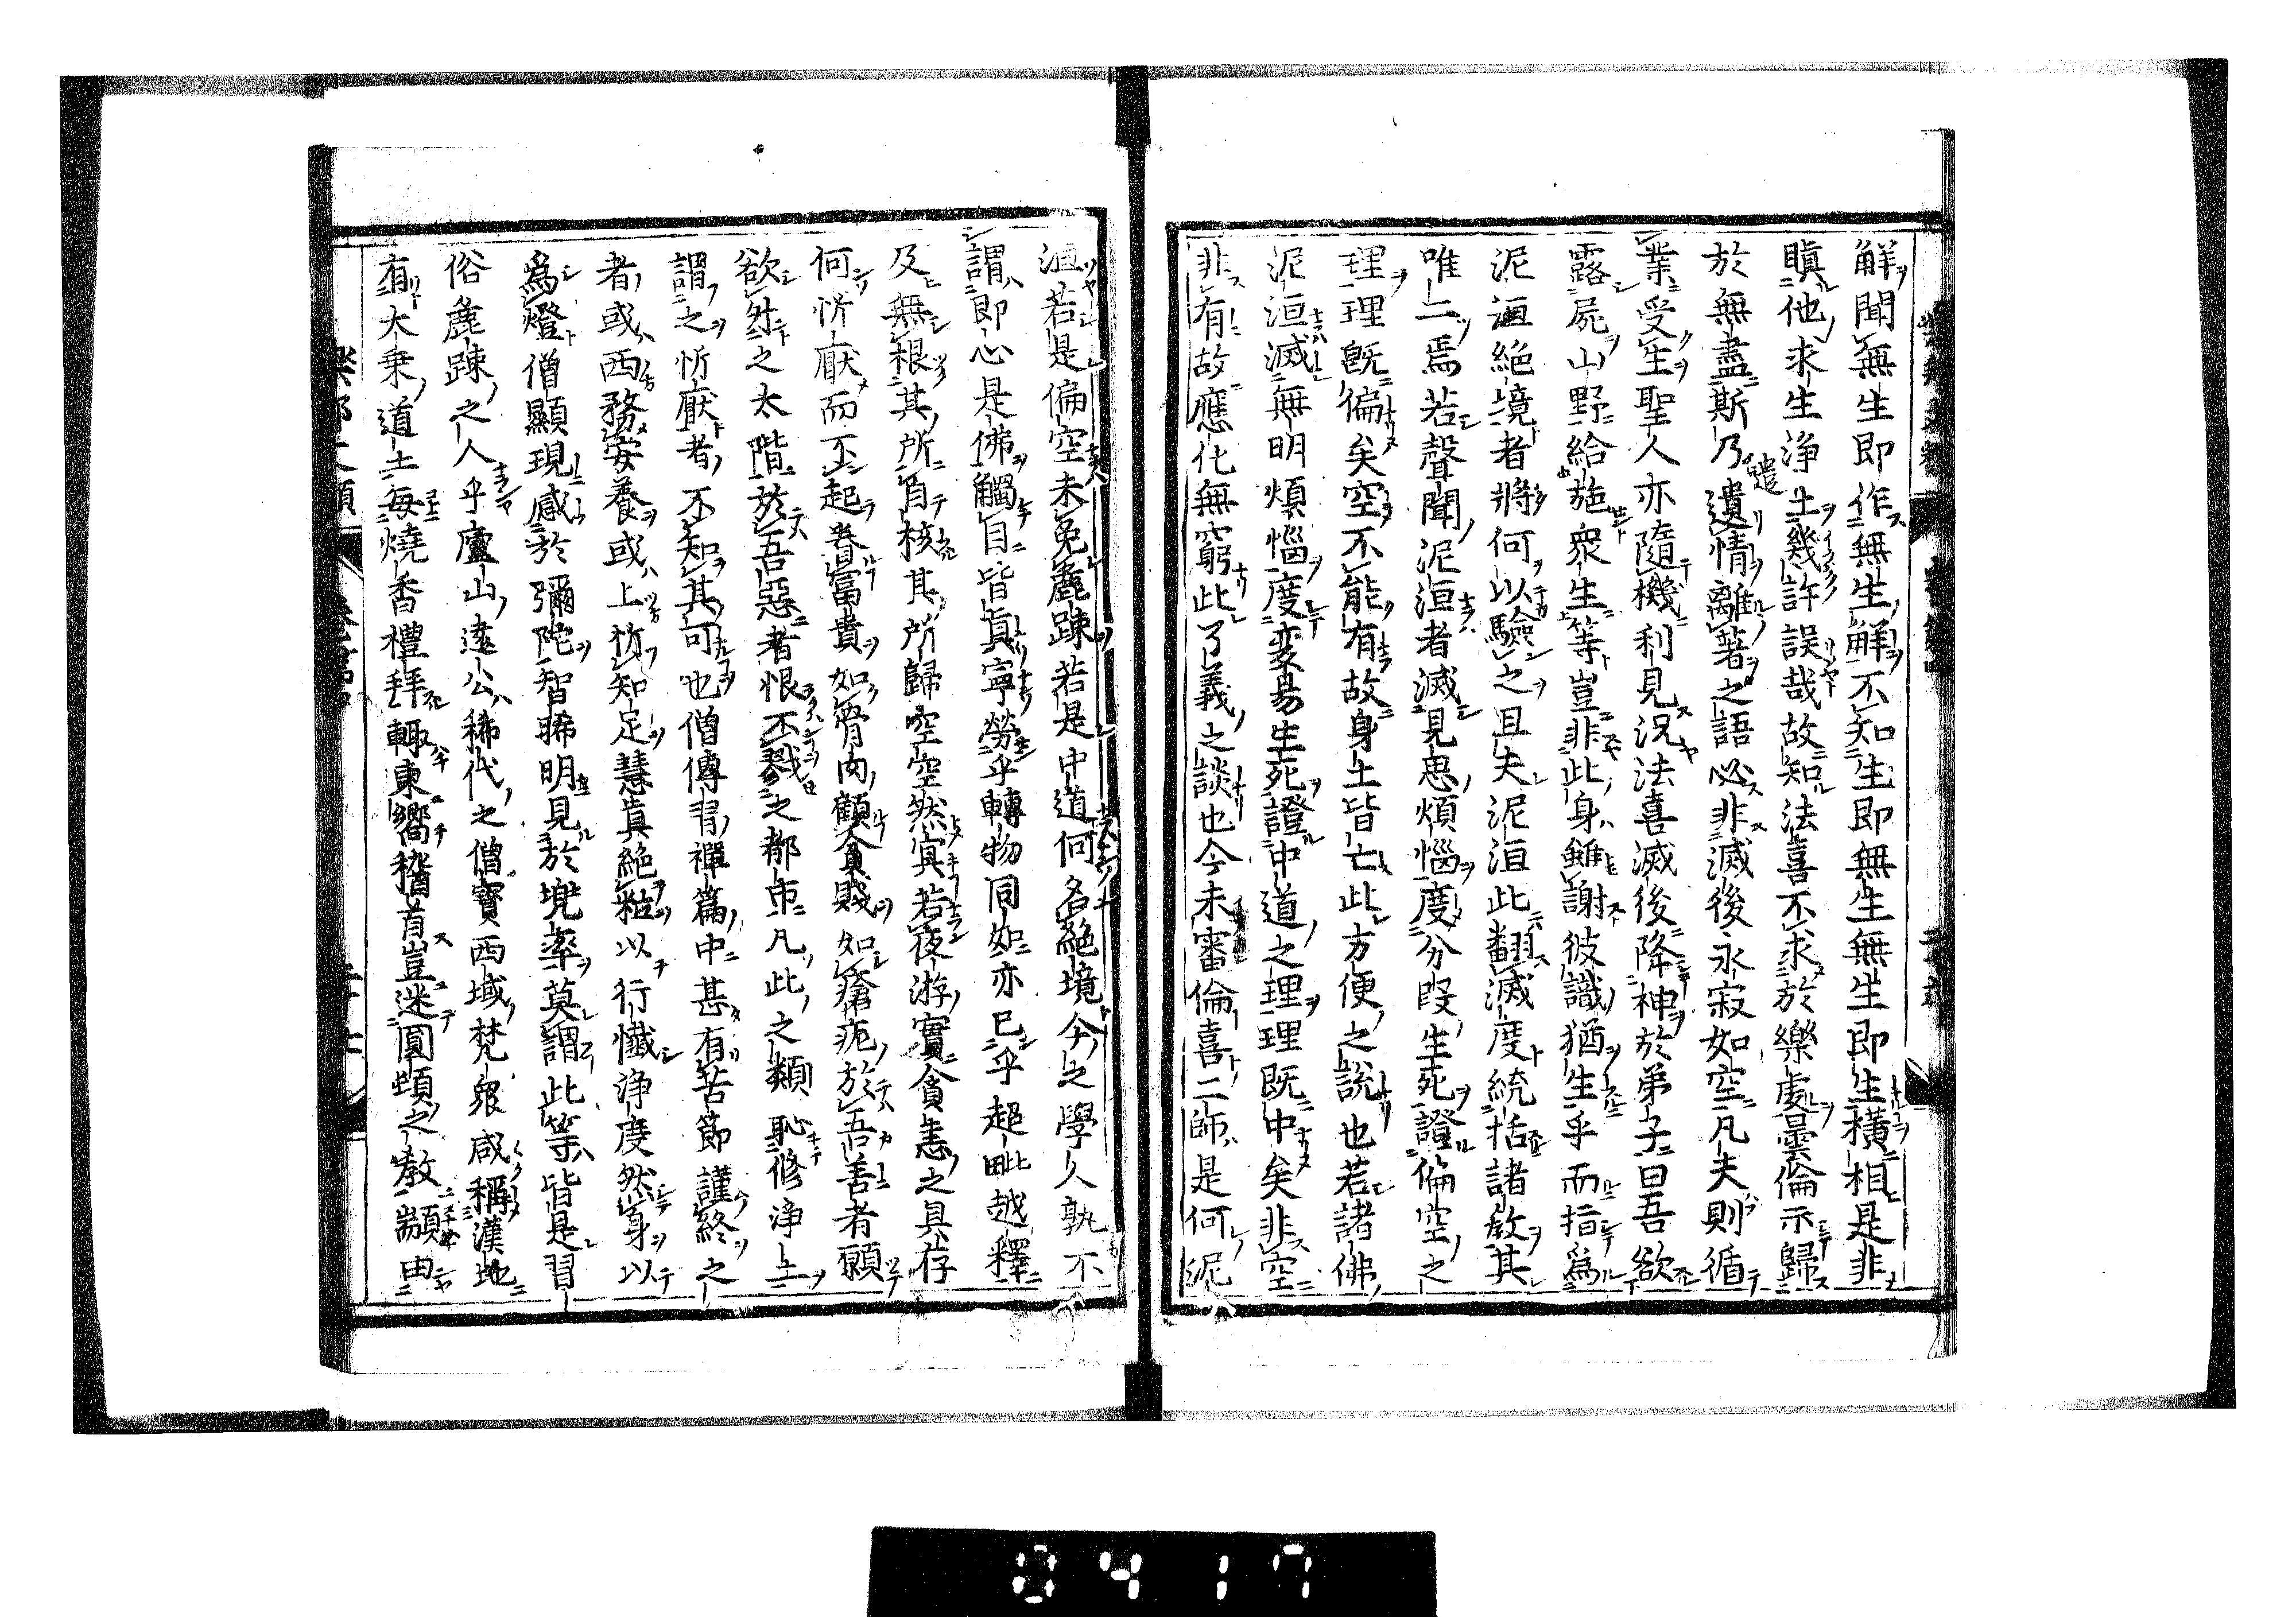 解聞無生即作無生解不知生即無生無生即生橫相是非
瞋他求生淨土幾許誤哉故知法喜不求於樂處曇倫示歸
於無盡斯乃遣遺情離著之語必非滅後永寂如空凡夫則循
業受生聖人亦隨機利見況法喜滅後降神於弟子曰吾欲
露屍山野給施衆生等豈非此身雖謝彼識猶生乎而指爲
泥洹絕境者將何以驗之且夫泥洹此翻滅度統括諸教其
唯二焉若聲聞泥洹者滅見思煩惱度分段生死證偏空之
理理既偏矣空不能有故身土皆亡此方便之說也若諸佛
泥洹滅無明煩惱度変易生死證中道之理理既中矣非空
非有故應化無窮此了義之談也今未審倫喜二師是何泥
洹若是偏空未免麁踈若是中道何名絕境今之學人孰不
謂即心是佛觸目皆真寧勞乎轉物同如亦已乎超毗越釋
及無根其所自核其所歸空空然冥若夜游實貪恚之具存
何忻厭而不起眷富貴如骨肉顧貧賤如瘡疣於吾善者願
欲升之太階於吾惡者恨不戮之都市凡此之類恥修淨土
謂之忻厭者不知其可也僧傳習禪篇中甚有苦節謹終之
者或西務安養或上祈知足慧真絕粒以行懺淨度然身以
爲燈僧顯現感於彌陀智晞明見於兜率莫謂此等皆是習
俗麁踈之人乎廬山遠公稀代之僧寶西域梵衆咸稱漢地
有大乗道士每燒香禮拜輙東嚮稽首豈迷圓頓之教顓由
樂邦文類